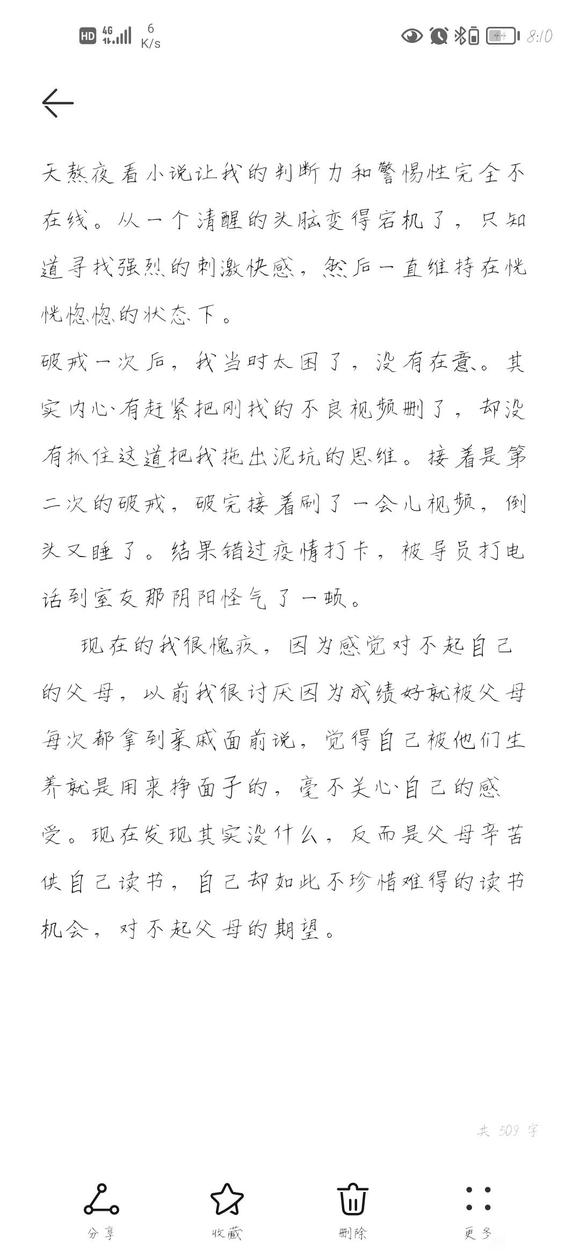 HD 4G 6 K/s 44 8:10
天熬夜看小说让我的判断力和警惕性完全不
在线。从一个清醒的头脑变得宕机了，只知
道寻找强烈的刺激快感，然后一直维持在恍
恍惚惚的状态下。
破戒一次后，我当时太困了，没有在意。其
实内心有赶紧把刚找的不良视频删了，却没
有抓住这道把我拖出泥坑的思维。接着是第
二次的破戒，破完接着刷了一会儿视频，倒
头又睡了。结果错过疫情打卡，被导员打电
话到室友那阴阳怪气了一顿。
现在的我很愧疚，因为感觉对不起自己
的父母，以前我很讨厌因为成绩好就被父母
每次都拿到亲戚面前说，觉得自己被他们生
养就是用来挣面子的，毫不关心自己的感
受。现在发现其实没什么，反而是父母辛苦
供自己读书，自己却如此不珍惜难得的读书
机会，对不起父母的期望。
共 509 字
分享 收藏 删除 更多